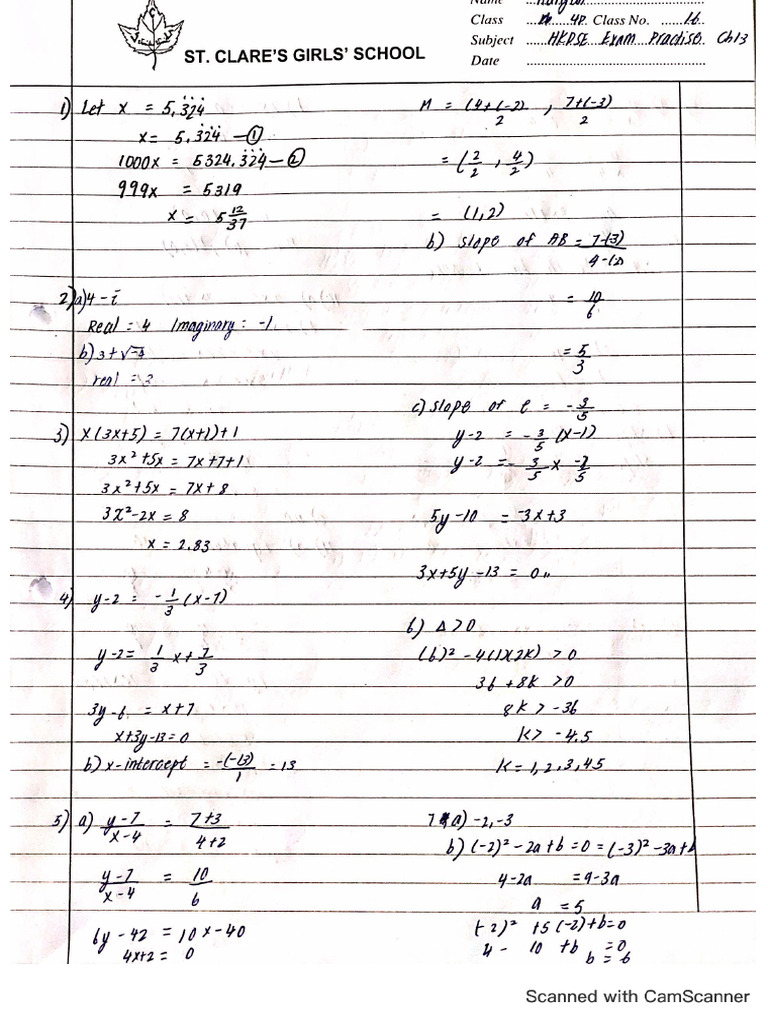 Name
Class 4P Class No. 16
Subject HKDSE Exam Practise Ch13
Date
ST. CLARE'S GIRLS' SCHOOL
1) Let x = 5.3̇2̇4̇
x = 5.3̇2̇4̇ — ①
1000x = 5324.3̇2̇4̇ — ②
999x = 5319
x = 5 12/37
2) a) 4 - i
Real = 4 Imaginary : -1
b) 3 + √-4
real = 3
3) x(3x+5) = 7(x+1)+1
3x² + 5x = 7x+7+1
3x² + 5x = 7x + 8
3x² - 2x = 8
x = 2.83
4) y-2 = -1/3 (x-7)
y-2 = 1/3 x + 7/3
3y-6 = x+7
x+3y-13=0
b) x-intercept = -(-13)/1 = 13
5) a) y-7/x-4 = 7+3/4+2
y-7/x-4 = 10/6
6y - 42 = 10x - 40
4x+2 = 0
M = (4+(-2)/2 , 7+(-3)/2
= (2/2 , 4/2)
= (1,2)
b) slope of AB = 7-(3)/4-(2)
= 10/6
= 5/3
c) slope of l = -3/5
y-2 = -3/5 (x-1)
y-2 = -3/5 x -2/5
5y-10 = -3x+3
3x+5y-13 = 0
6) Δ > 0
(6)² - 4(1)(2k) > 0
36 + 8k > 0
8k > -36
k > -4.5
k = 1, 2, 3, 4 5
7 a) -2, -3
b) (-2)² - 2a + b = 0 = (-3)² - 3a + b
4-2a = 9-3a
a = 5
(-2)² + 5(-2) + b = 0
4 - 10 + b = 0
b = 6
Scanned with CamScanner